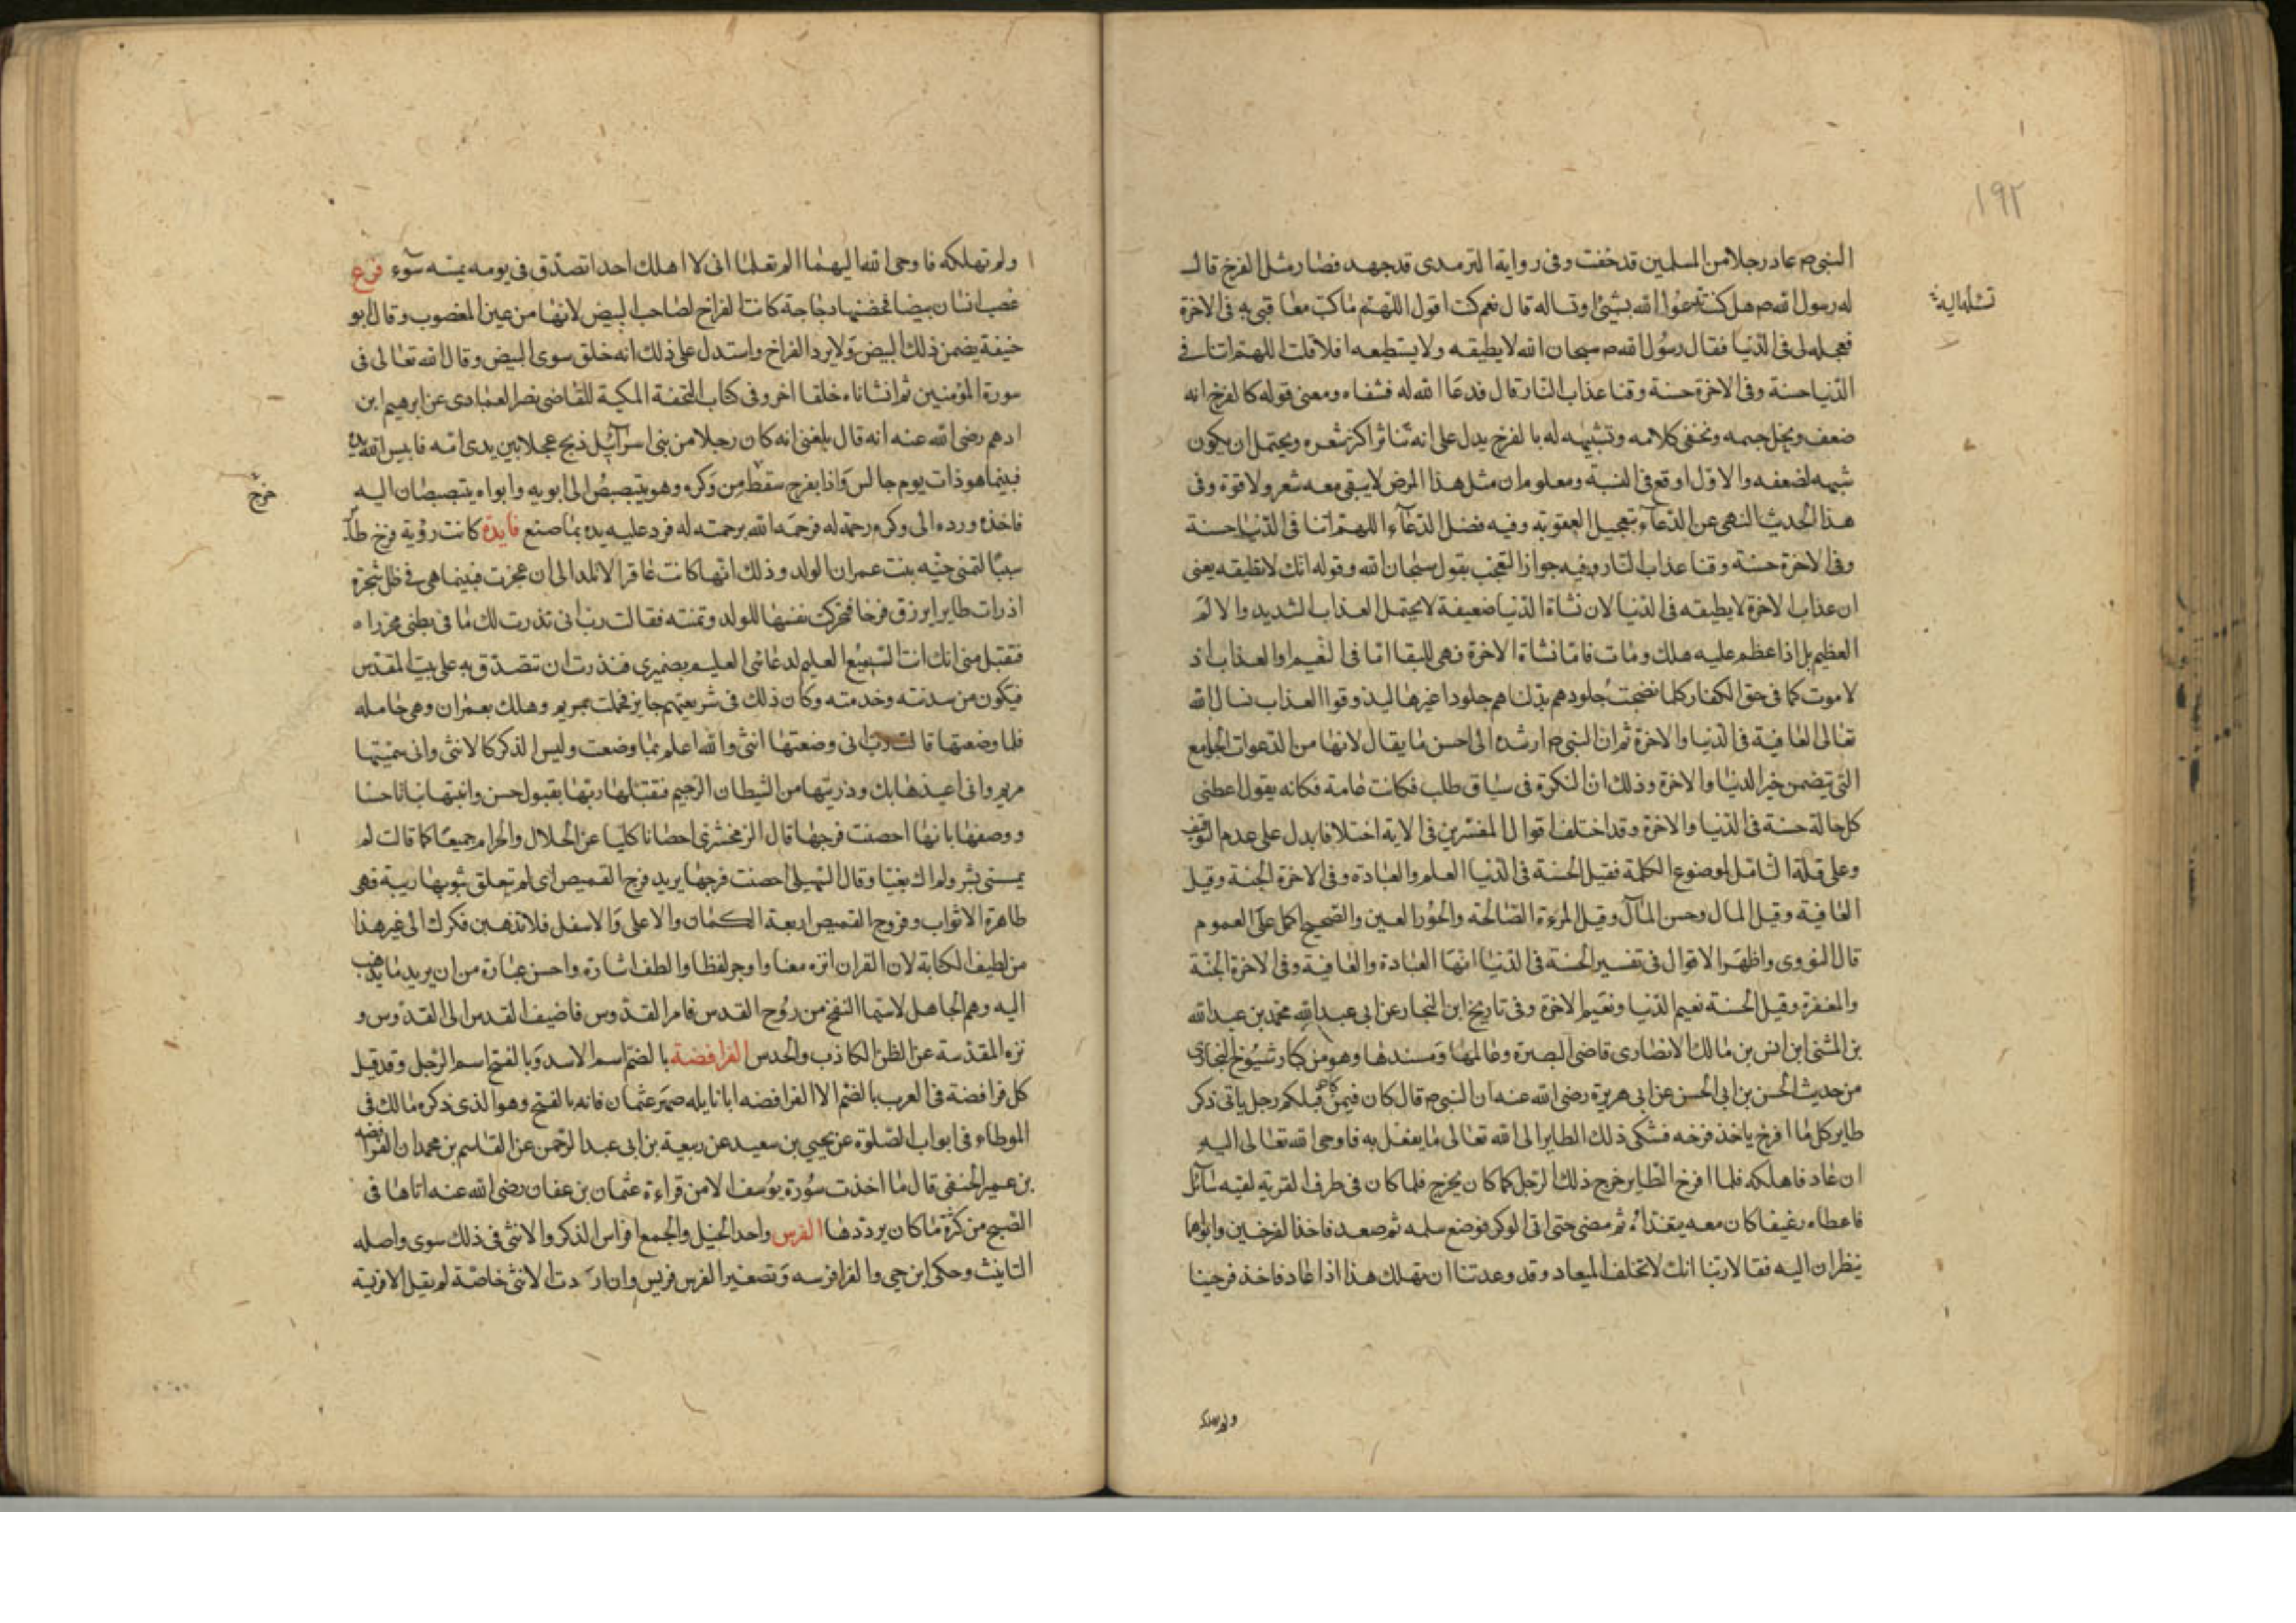 ١٩٢
النبى ص عاد رجلا من المسلمين قد خفت وفى رواية الترمدى قد جهد فصار مثل الفرخ قال
له رسول الله ص هل كنت تدعوا الله بشيئ او تساله قال نعم كنت اقول اللهتم ما كنت معاقبى به فى الاخرة
فعجله لى فى الدنيا فقال رسول الله ص سبحان الله لا يطيقه ولا يستطيعه افلا قلت اللهتم اتنا فى
الدنيا حسنة وفى الاخرة حسنة وقنا عذاب النار قال فدعا الله له فشفاه ومعنى قوله كالفرخ انه
ضعف ونحل جسمه وخفى كلامه وتشبيهه له بالفرخ يدل على انه تناثر اكثر شعره ويحتمل ان يكون
شبهه لضعفه والاول اوقع فى النسبة ومعلوم ان مثل هذا المرض لا يبقى معه شعر ولا قوة وفى
هذا الحديث النهى عن الدعاء بتعجيل العقوبة وفيه فضل الدعآء اللهتم اتنا فى الدنيا حسنة
وفى الاخرة حسنة وقنا عذاب النار وفيه جواز التعجب بقول سبحان الله وقوله انك لا تطيقه يعنى
ان عذاب الاخرة لا يطيقه فى الدنيا لان نشاة الدنيا ضعيفة لا يحتمل العذاب الشديد والالم
العظيم بل اذا عظم عليه هلك ومات فاما نشاة الاخرة فهى للبقا اما فى النعيم او العذاب اذ
لا موت كما فى حق الكفار كلما نضجت جلودهم بدلناهم جلودا غيرها ليذوقوا العذاب نسال الله
تعالى العافية فى الدنيا والاخرة ثم ان النبى ص ارشده الى احسن ما يقال لانها من الدعوات الجوامع
التى تيضمن خير الدنيا والاخرة وذلك ان النكرة فى سياق طلب فكانت عامة فكانه يقول اعطنى
كل حالة حسنة فى الدنيا والاخرة وقد اختلف اقوال المفسرين فى الاية اختلافا يدل على عدم التوقيف
وعلى قلة التامل لموضوع الكلمة فقيل الحسنة فى الدنيا العلم والعبادة وفى الاخرة الجنة وقيل
العافية وقيل المال وحسن المآل وقيل المرءة الصالحة والحور العين والصحيح الحمل على العموم
قال النووى واظهر الاقوال فى تفسير الحسنة فى الدنيا انها العبادة والعافية وفى الاخرة الجنة
والمغفرة وقيل الحسنة نعيم الدنيا ونعيم الاخرة وفى تاريخ ابن النجار عن ابى عبد الله محمد بن عبد الله
بن المثنى ابن انس بن مالك الانصارى قاضى البصرة وعالمها ومسندها وهو من كبار شيوخ البخارى
من حديث الحسن بن ابى الحسن عن ابى هريرة رضى الله عنه ان النبى ص قال كان فيمن كان قبلكم رجل ياتى ذكر
طاير كل ما افرخ ياخذ فرخه فشكى ذلك الطاير الى الله تعالى ما يفعل به فاوحى الله تعالى اليه
ان عاد فاهلكه فلما افرخ الطاير خرج ذلك الرجل كما كان يخرج فلما كان فى طرف القرية لقيه سآئل
فاعطاه رغيفا كان معه يتغذاه ثم مضى حتى اتى الوكر فوضع سلمه ثم صعد فاخذ الفرخين وابواهما
ينظران اليه فقالا ربنا انك لا تخلف الميعاد وقد وعدتنا ان تهلك هذا اذا عاد فاخذ فرخينا
ولم تهلكه
ولم تهلكه فاوحى الله اليهما الم تعلما انى لا اهلك احدا تصدق فى يومه بميتة سوء فرع
غصب انسان بيضا فحضنها دجاجة كانت الفراخ لصاحب البيض لانها من عين المغصوب وقال ابو
حنيفة يضمن ذلك البيض ولا يرد الفراخ واستدل على ذلك انه خلق سوى البيض وقال الله تعالى فى
سورة المؤمنين ثم انشاناه خلقا اخر وفى كتاب التحفة المكية للقاضى نصر العبادى عن ابرهيم ابن
ادهم رضى الله عنه انه قال بلغنى انه كان رجلا من بنى اسرآئيل ذبح عجلا بين يدى امه فايبس الله يده
فبينما هو ذات يوم جالس واذا بفرخ سقط من وكره وهو يتبصبص الى ابويه وابواه يتبصبصان اليه
خرج
فاخذه ورده الى وكره رحمة له فرحمه الله برحمته له فرد عليه يده بما صنع فايدة كانت رؤية فرخ طآير
سببا لتمنى حنه بنت عمران الولد وذلك انها كانت عاقرا لا تلد الى ان عجزت فبينما هى فى ظل شجرة
اذ رات طايرا يرزق فرخا فتحركت نفسها للولد وتمنته فقالت رب انى نذرت لك ما فى بطنى محررا
فتقبل منى انك انت السميع العليم لدعائى العليم بضميرى فنذرت ان تتصدق به على بيت المقدس
فيكون من سدنته وخدمته وكان ذلك فى شريعتهم جايز فحملت بمريم وهلك بعمران وهى حامله
فلما وضعتها قالت رب انى وضعتها انثى والله اعلم بما وضعت وليس الذكر كالانثى وانى سميتها
مريم وانى اعيذها بك وذريتها من الشيطان الرجيم فتقبلها ربها بقبول حسن وانبتها نباتا حسنا
ووصفها بانها احصنت فرجها قال الزمخشرى احصانا كليا عن الحلال والحرام جميعا كما قالت لم
يمسسنى بشر ولم اك بغيا وقال السهيلى احصنت فرجها يريد فرج القميص اى لم تعلق بثوبها ريبة فهى
طاهرة الاثواب وفروج القميص اربعة الكمان والاعلى والاسفل فلا تذهبن فكرك الى غير هذا
من لطيف الكناية لان القران انزه معنا واوجز لفظا والطف اشارة واحسن عبارة من ان يريد ما يذهب
اليه وهم الجاهل لاسيما النفخ من روح القدس فامر القدوس فاضيف القدس الى القدوس و
نزه المقدسة عن الظن الكاذب والحدس الفرافضة بالضم اسم الاسد وبالفتح اسم الرجل وقد قيل
كل فرافضة فى العرب بالضم الا الفرافضه ابا نايله صهر عثمان فانه بالفتح وهو الذى ذكره مالك فى
الموطاء فى ابواب الصلوة عن يحيى بن سعيد عن ربيعة بن ابى عبد الرحمن عن القاسم بن محمد ان الفرافضه
بن عمير الحنفى قال ما اخذت سورة يوسف الا من قراءة عثمان بن عفان رضى الله عنه اتاها فى
الصبح من كثرة ما كان يرددها الفرس واحد الخيل والجمع افراس الذكر والانثى فى ذلك سوى واصله
التانيث وحكى ابن جى والفرا فرسه وتصغير الفرس فريس وان اردت الانثى خاصة لم يقل الا فريسة